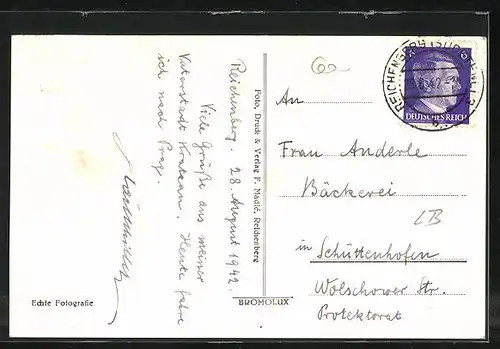 Reichenberg. 28. August 1942.
Viele Grüße aus meiner
Vaterstadt Kratzau. Heute fahre
ich nach Prag.
Foto, Druck & Verlag F. Madlé, Reichenberg
BROMOLUX
Echte Fotografie
REICHENBERG (SUDETENL)
6
DEUTSCHES REICH
An
Frau Anderle
Bäckerei
LB
in Schüttenhofen
Wolschower Str.
Protektorat